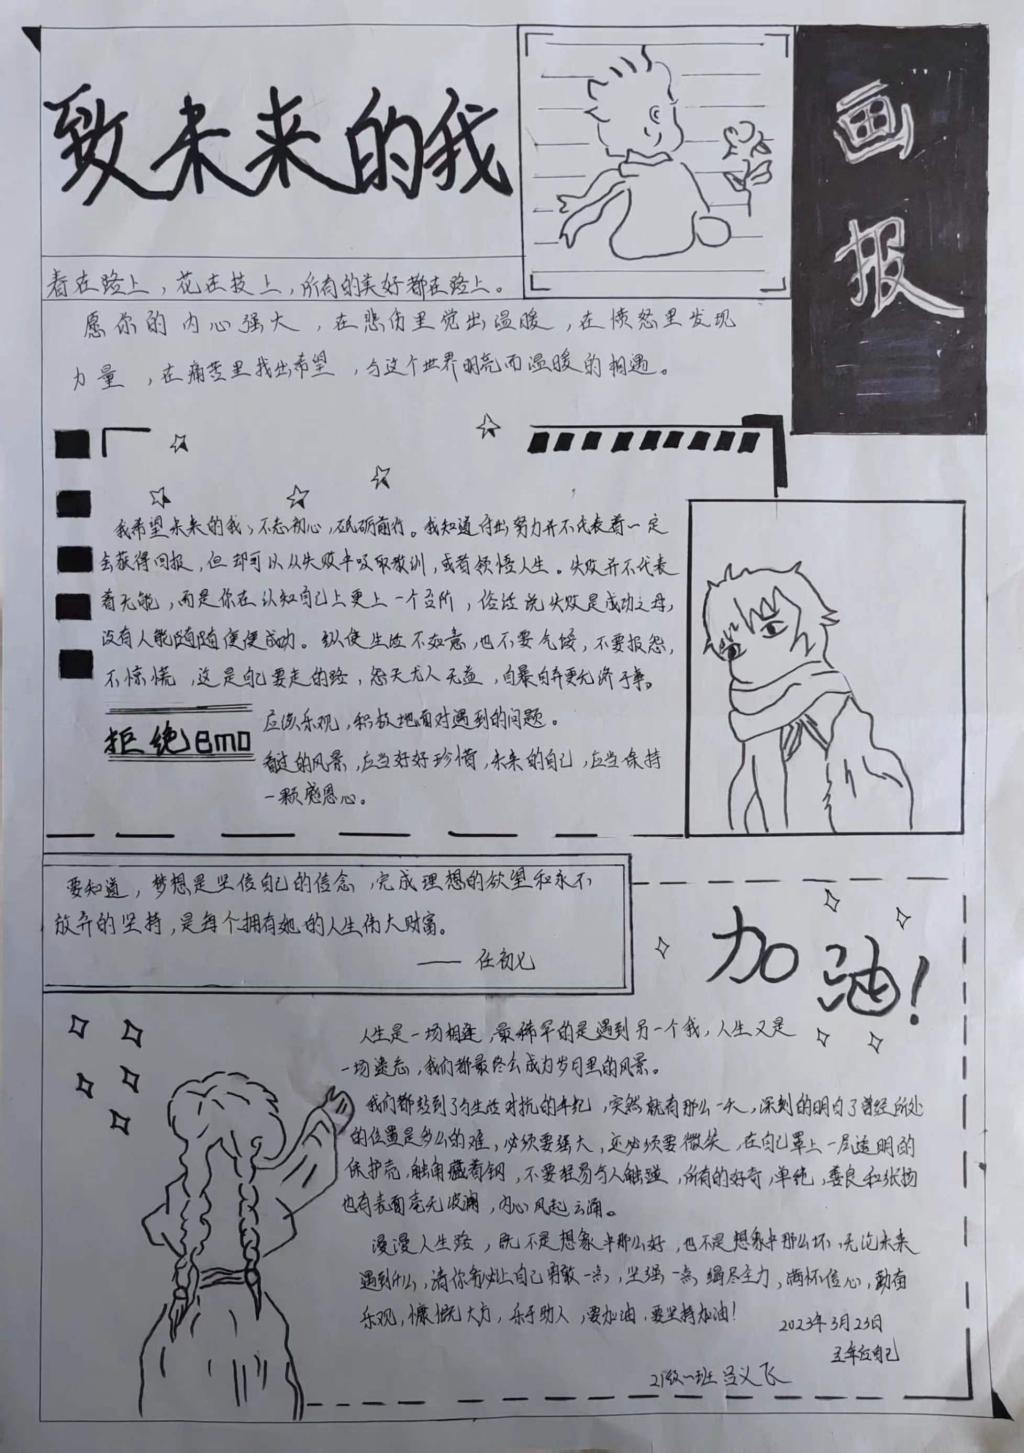 致未来的我
画报
春在路上，花在枝上，所有的美好都在路上。
愿你的内心强大，在悲伤里觉出温暖，在愤怒里发现
力量，在痛苦里找出希望，与这个世界明亮而温暖的相遇。
我希望未来的我，不忘初心，砥砺前行。我知道付出努力并不代表着一定
会获得回报，但却可以从失败中吸取教训，或者领悟人生。失败并不代表
着无能，而是你在认知自己上更上一个台阶，俗话说失败是成功之母，
没有人能随随便便成功。纵使生活不如意，也不要气馁，不要报怨，
不惊慌，这是自己要走的路，怨天尤人无益，自暴自弃更无济于事。
拒绝emo
应该乐观，积极地面对遇到的问题。
看过的风景，应当好好珍惜，未来的自己，应当保持
一颗感恩心。
要知道，梦想是坚信自己的信念，完成理想的欲望和永不
放弃的坚持，是每个拥有她的人生伟大财富。
—— 任初七
加油！
人生是一场相逢，最稀罕的是遇到另一个我，人生又是
一场遗忘，我们都最终会成为岁月里的风景。
我们都活到了与生活对抗的年纪，突然就有那么一天，深刻的明白了曾经所处
的位置是多么的难，必须要强大，还必须要微笑，在自己罩上一层透明的
保护壳，触角藏着钢，不要轻易与人触碰，所有的好奇，单纯，善良和张扬
也有表面毫无波澜，内心风起云涌。
漫漫人生路，既不是想象中那么好，也不是想象中那么坏，无论未来
遇到什么，请你看灿上自己勇敢一点，坚强一点，竭尽全力，满怀信心，勤奋
乐观，慷慨大方，乐于助人，要加油，要坚持加油！
2023年3月23日
五年后自己
21级一班 吕义飞